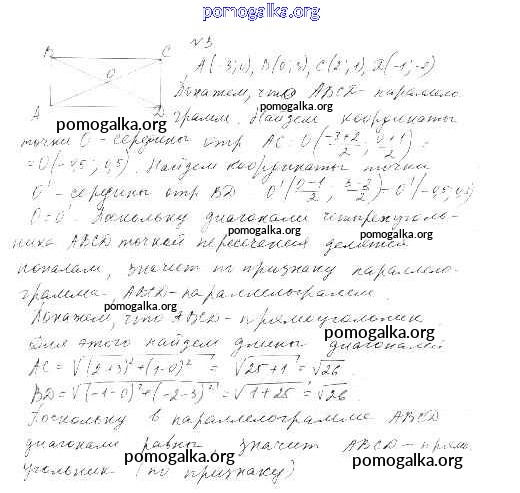 pomogalka.org
№3
B C
A(-3;0), B(0;3), C(2;1), D(-1;-2)
O
Докажем, что ABCD - параллело-
pomogalka.org
A D
грамм. Найдем координаты
pomogalka.org
точки O - середины отр AC: O(-3+2/2; 0+1/2) =
= O(-0,5; 0,5). Найдем координаты точки
pomogalka.org
O' - середины отр BD O'(0-1/2; 3-2/2) = O'(-0,5; 0,5)
O = O'. Поскольку диагонали четырехуголь-
pomogalka.org
ника ABCD точкой пересечения делятся
pomogalka.org
пополам, значит по признаку параллело-
грамма ABCD - параллелограмм.
pomogalka.org
Докажем, что ABCD - прямоугольник
pomogalka.org
Для этого найдем длины диагоналей
AC = √(2+3)²+(1-0)² = √25+1 = √26.
pomogalka.org
BD = √(-1-0)²+(-2-3)² = √1+25 = √26.
Поскольку в параллелограмме ABCD
pomogalka.org
диагонали равны значит ABCD - прям-
pomogalka.org
угольник (по признаку)
pomogalka.org